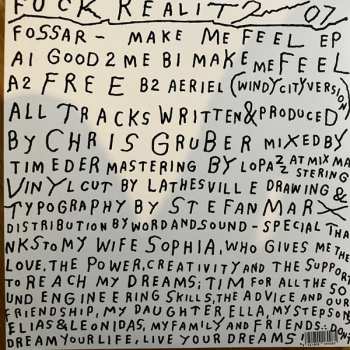 FUCK REALITY 07
FOSSAR - MAKE ME FEEL EP
A1 GOOD 2 ME B1 MAKE ME FEEL
A2 FREE B2 AERIEL (WINDY CITY VERSION)
ALL TRACKS WRITTEN & PRODUCED
BY CHRIS GRUBER MIXED BY
TIM EDER MASTERING BY LOPAZZ AT MIX MA
STERING
VINYL CUT BY LATHESVILLE DRAWING &
TYPOGRAPHY BY STEFAN MARX
DISTRIBUTION BY WORD AND SOUND - SPECIAL THA
NKS TO MY WIFE SOPHIA, WHO GIVES ME THE
LOVE, THE POWER, CREATIVITY AND THE SUPPORT
TO REACH MY DREAMS; TIM FOR ALL THE SO
UND ENGINEERING SKILLS, THE ADVICE AND OUR
FRIENDSHIP, MY DAUGHTER ELLA, MY STEPSONS
ELIAS & LEONIDAS, MY FAMILY AND FRIENDS.: DON'T
DREAM YOUR LIFE, LIVE YOUR DREAMS